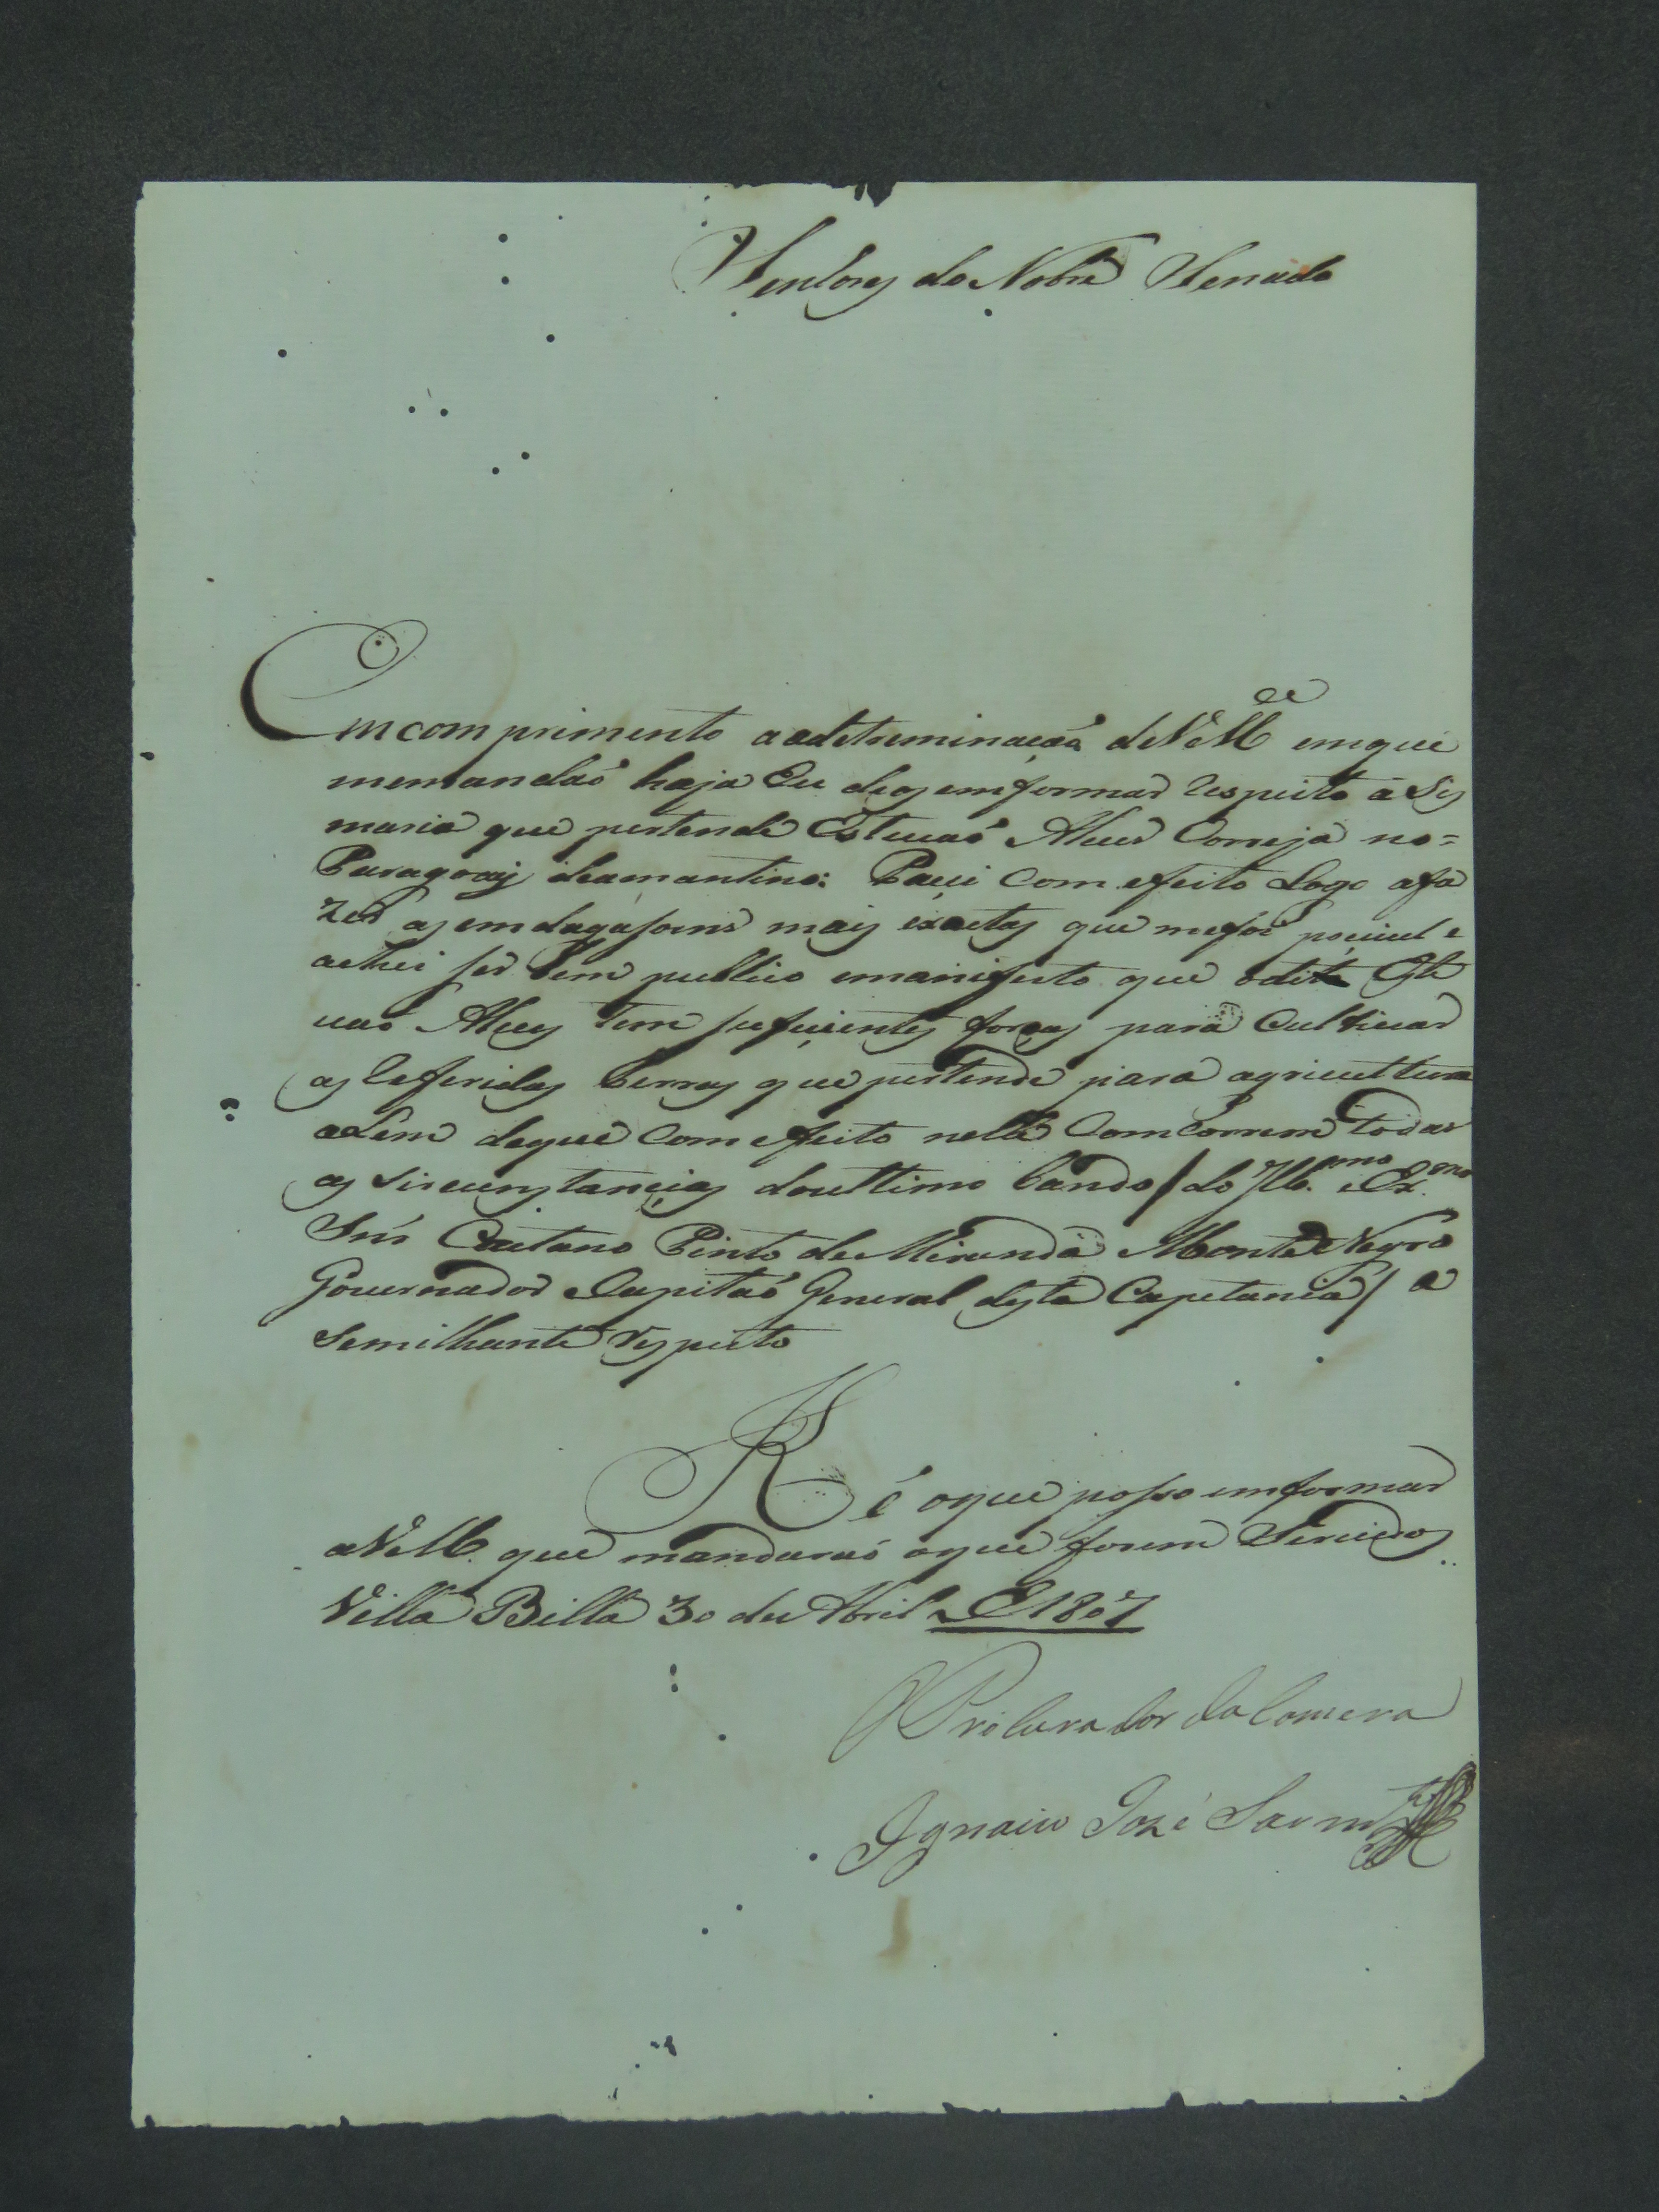 Senhores do Nobre Senado
Em comprimento aadetreminacaó deVeM ce emque
memandaó haja Eu deos emformar Respeito á Sis
maria que pertende Estevaó Alves Correja no=
Paragoaij deamantino: Pacei Com efeito Logo afa
zer as emdagasoins mais éxactas que mefoi pocivel e
achei ser bem publico emanifesto que odito Este
vaó Alves Tem sufucientes forças para Cultivar
as Referidas terras que pertende para agricultura
aLem deque Com efeito nelle ComCorrem todas
as Sircunstancias doulttimo bando / do Illmo. eExmo.
Snr Caetano Pinto de Miranda Monte Negro
Governador eCapitaó General desta Capetania / a
Semilhante respeito
R é oque posso emformar
aVeM. que mandaraó oque forem Servidos
Villa Bella 30 de Abril de 1807
O Procurador da Camera
Ignacio Jozé Sarmto